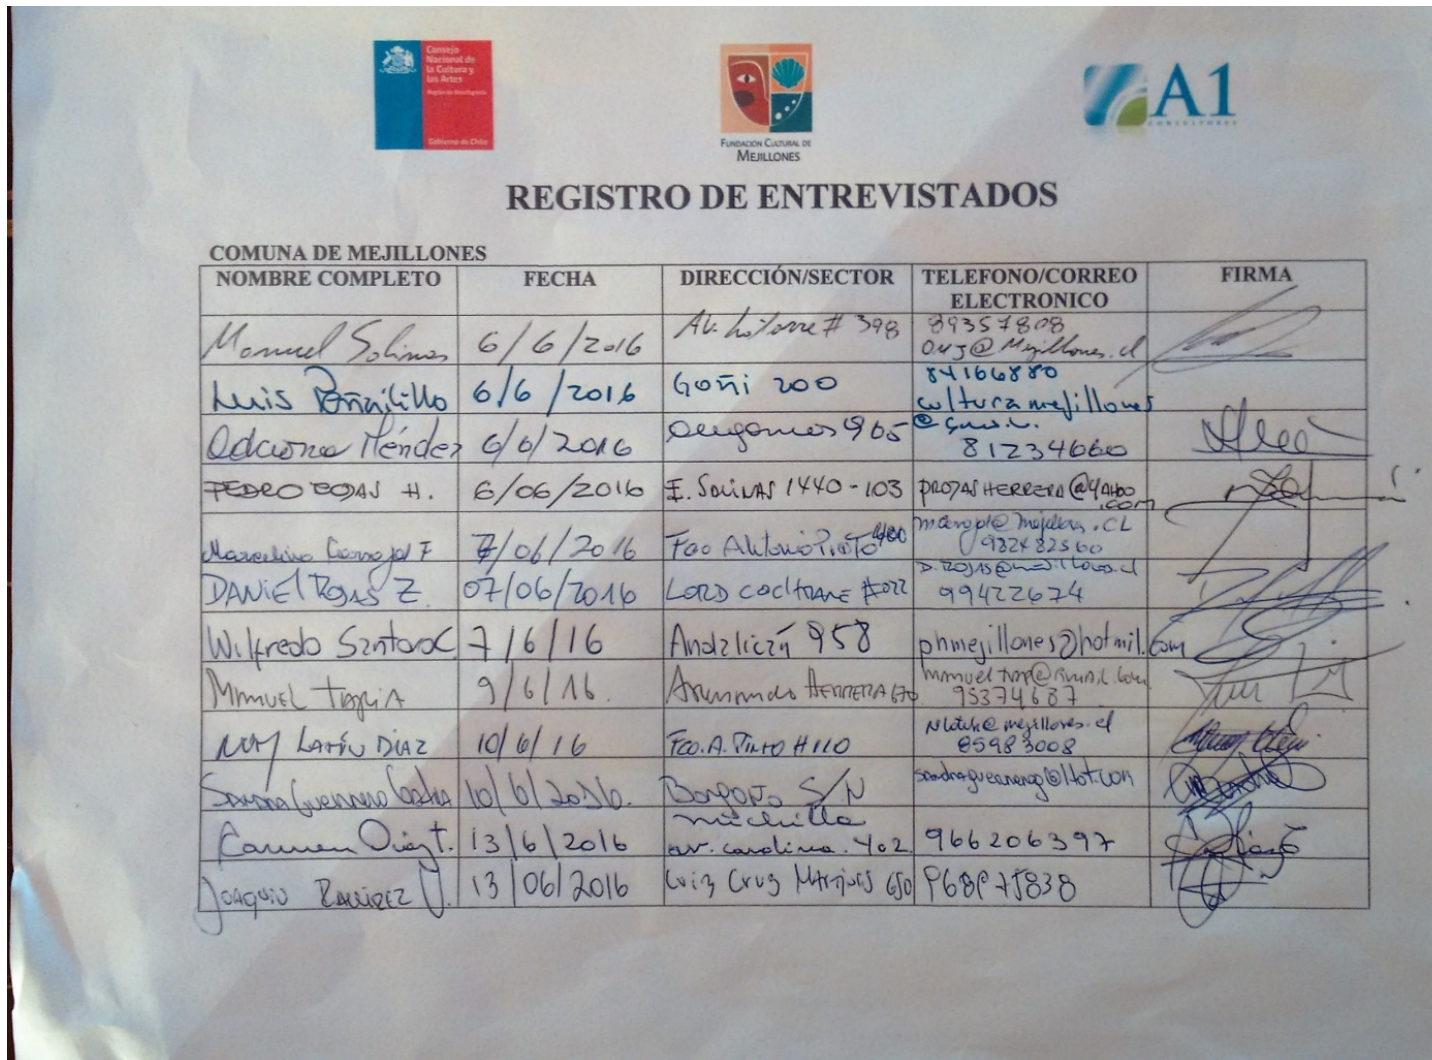 Consejo
Nacional de
la Cultura y
las Artes
Región de Antofagasta
Gobierno de Chile
FUNDACIÓN CULTURAL DE
MEJILLONES
A1
CONSULTORES
REGISTRO DE ENTREVISTADOS
COMUNA DE MEJILLONES
NOMBRE COMPLETO FECHA DIRECCIÓN/SECTOR TELEFONO/CORREO ELECTRONICO FIRMA
Manuel Salinas 6/6/2016 Av. Latorre # 398 89357808
OMJ@Mejillones.cl
Luis 6/6/2016 Goñi 200 84166880
culturamejillones
@gmail.
Adriana Méndez 6/6/2016 Angamos 965 81234660
PEDRO ROJAS H. 6/06/2016 E. SALINAS 1440-103 PROJASHERRERA@YAHOO
.com
Marcelino Carvajal F 7/06/2016 Fco Antonio Pinto
982482560
DANIEL ROJAS Z. 07/06/2016 LORD COCHRANE
99422674
Wilfredo Santoro C. 7/6/16 Andalicán 958 phmejillones@hotmil.com
MANUEL TAPIA 9/6/16. Armando HERRERA 670
95374687
LATÍN DIAZ 10/6/16 FCO. A. PINTO #110
85983008
SANDRA Guerrero 10/6/2016. S/N
Michilla
Carmen Díaz T. 13/6/2016 av. carolina. 402 966206397
JOAQUIN RAMIREZ 13/06/2016 Luis Cruz Martínez 650 968975838